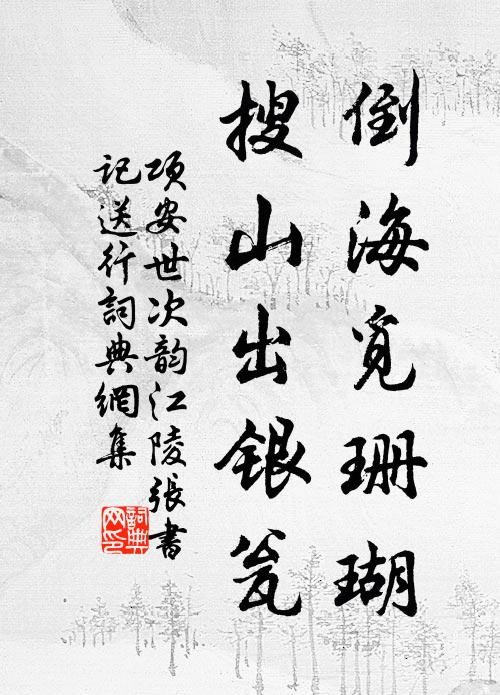 倒海覓珊瑚
搜山出银瓮
项安世次韵江陵張書
記送行詞典網集
詞典
网印